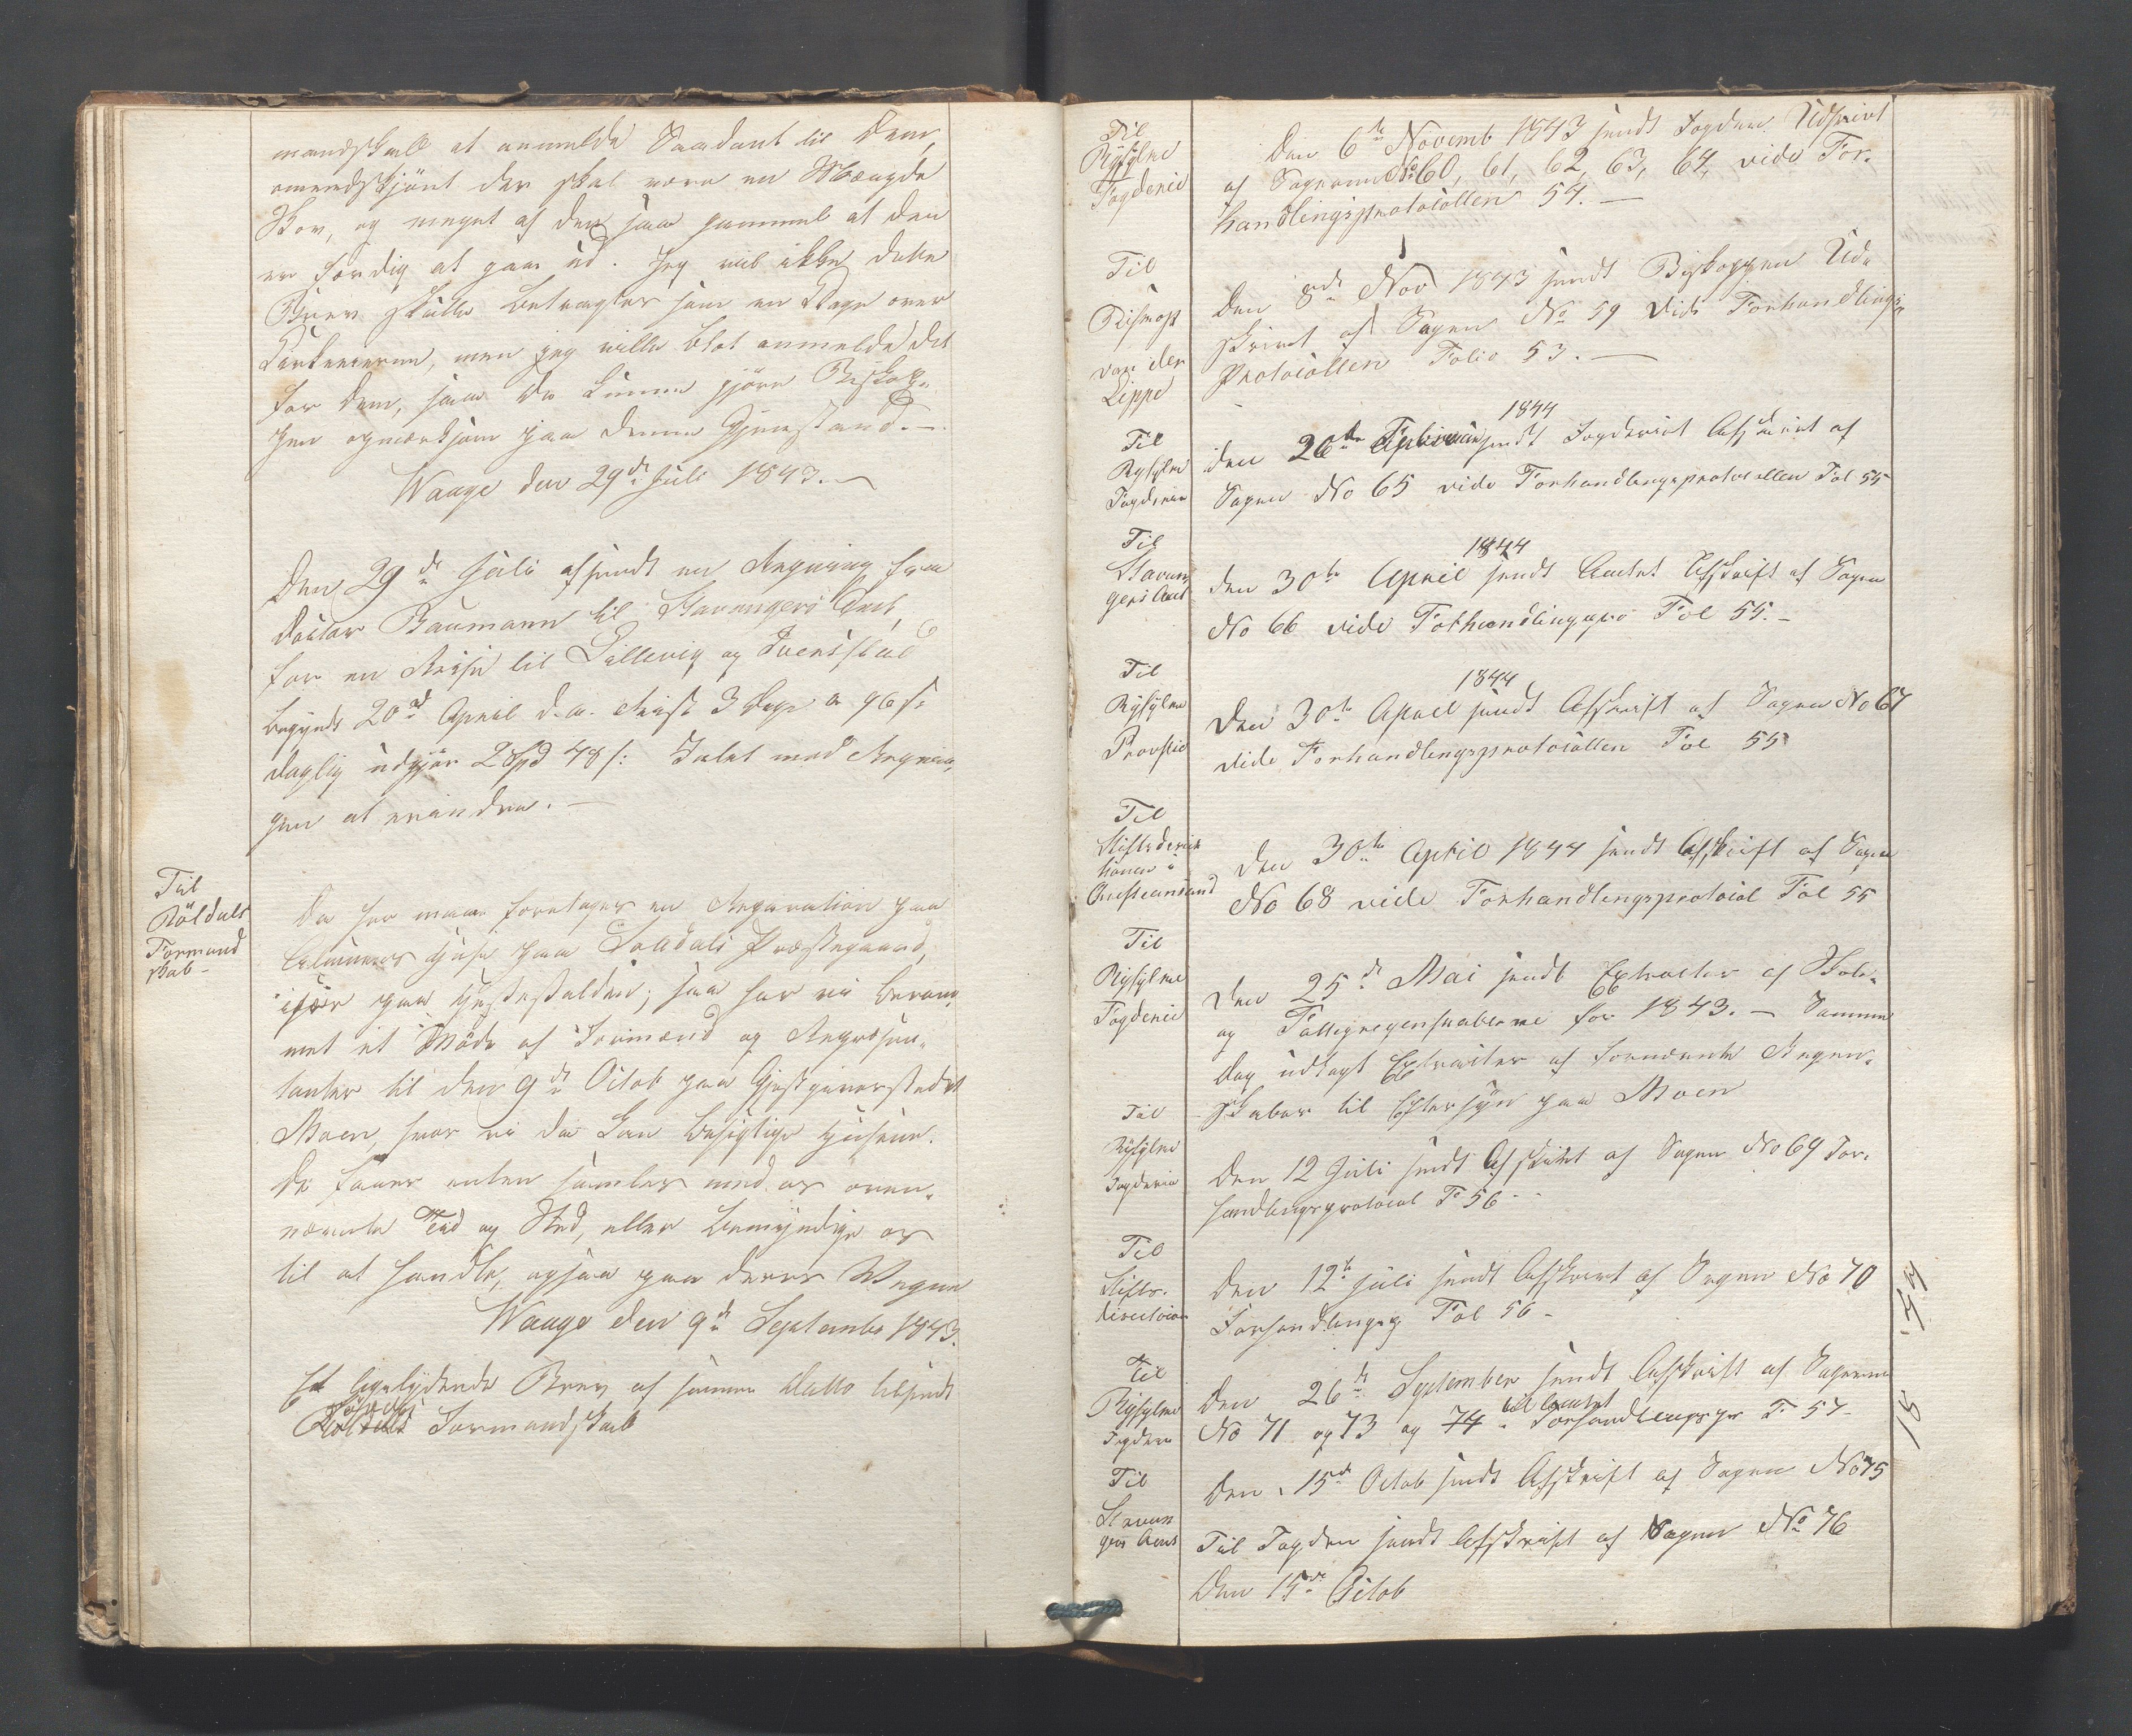 mandskab at anmelde Saadant til Dem,
omendskjönt der skal være en Mængde
Skov, og meget af den saa gammel at den
er færdig at gaae ud. Jeg vil ikke dette
Brev skulle betragtes som en Klage over
men jeg vilde blot anmelde det
for Dem, saa De kunne gjöre Biskop-
pen opmærksom paa denne Gjenstand. –
Waage den 29de Juli 1843. –
Den 29de Juli afsendt en Regning fra
Doctor Baumann til Stavangers Amt,
for en Reise til Lillevig og
begyndt 20de April d. a. 3 Dage a 96 s:
daglig udgjör 2 Spd 48 s: Talet med Regnin-
gen at
Til
Röldals
Formand
skab –
Da her maae foretages en Reparation paa
Huse paa Præstegaard,
især paa Hestestalden; saa har vi beram-
met et Möde af Formænd og Repræsen-
tanter til den 9de Octob paa Gjæstgiverstedet
Moen, hvor vi da kan besigtige Husene.
De faaer enten samles med os oven-
nævnte Tid og Sted, eller bemyndige os
til at handle, ogsaa paa deres Vegne
Waage den 9de Septembr 1843.
Et ligelydende Brev af samme Datto tilsendt
Formandskab
Til
Ryfylke
Fogderie
Den 6te Novemb 1843 sendt Fogden Udskrivt
af Sagerne No 60, 61, 62, 63, 64, vide For-
handlingsprotocollen 54. –
Til
Bisvop
von der
Lippe
Den 8de Nov 1843 sendt Biskoppen Ud-
skrivt af Sagen No 59 vide Forhandlings-
Protocollen Folio 53. –
Til
Ryfylke
Fogderie
1844
den 26de Februar sendt Fogderiet Afskrivt af
Sagen No 65 vide Forhandlingsprotocollen Fol 55
Til
Stavan
gers Amt
1844
den 30te April sendt Amtet Afskrift af Sagen
No 66 vide Forhandlingspro Fol 55. –
Til
Ryfylke
Provstie
1844
Den 30te April sendt Afskrift af Sagen No 67
vide Forhandlingsprotocollen Fol 55
Til
Stiftsdirek
tionen i
Christiansand
Den 30te April 1844 sendt Afskrift af Sagen
No 68 vide Forhandlingsprotocol Fol 55
Til
Ryfylke
Fogderie
Den 25de Mai sendt Extracter af Skole-
og Fattigregenskaberne for 1843. – Samme
Dag udlagt Extracter af Regen-
skaber til Eftersyn paa Moen
Til
Ryfylke
Fogderie
Den 12 Juli sendt Afskrivt af Sagen No 69 For-
handlingsprotocol F 56 –
Til
Stifts-
direction
Den 12te Juli sendt Afskrivt af Sagen No 70
Forhandlingsp Fol 56 –
Til
Ryfylke
Fogderie
Den 26de September sendt Afskrift af Sagerne
til Amtet
No 71 og 73 og 74 – Forhandlingspr F 57 –
Til
Stavan
gers Amt
Den 15de Octob sendt Afskrift af Sagen No 75
Til Fogden sendt Afskrift af Sagen No 76
Den 15de Octob